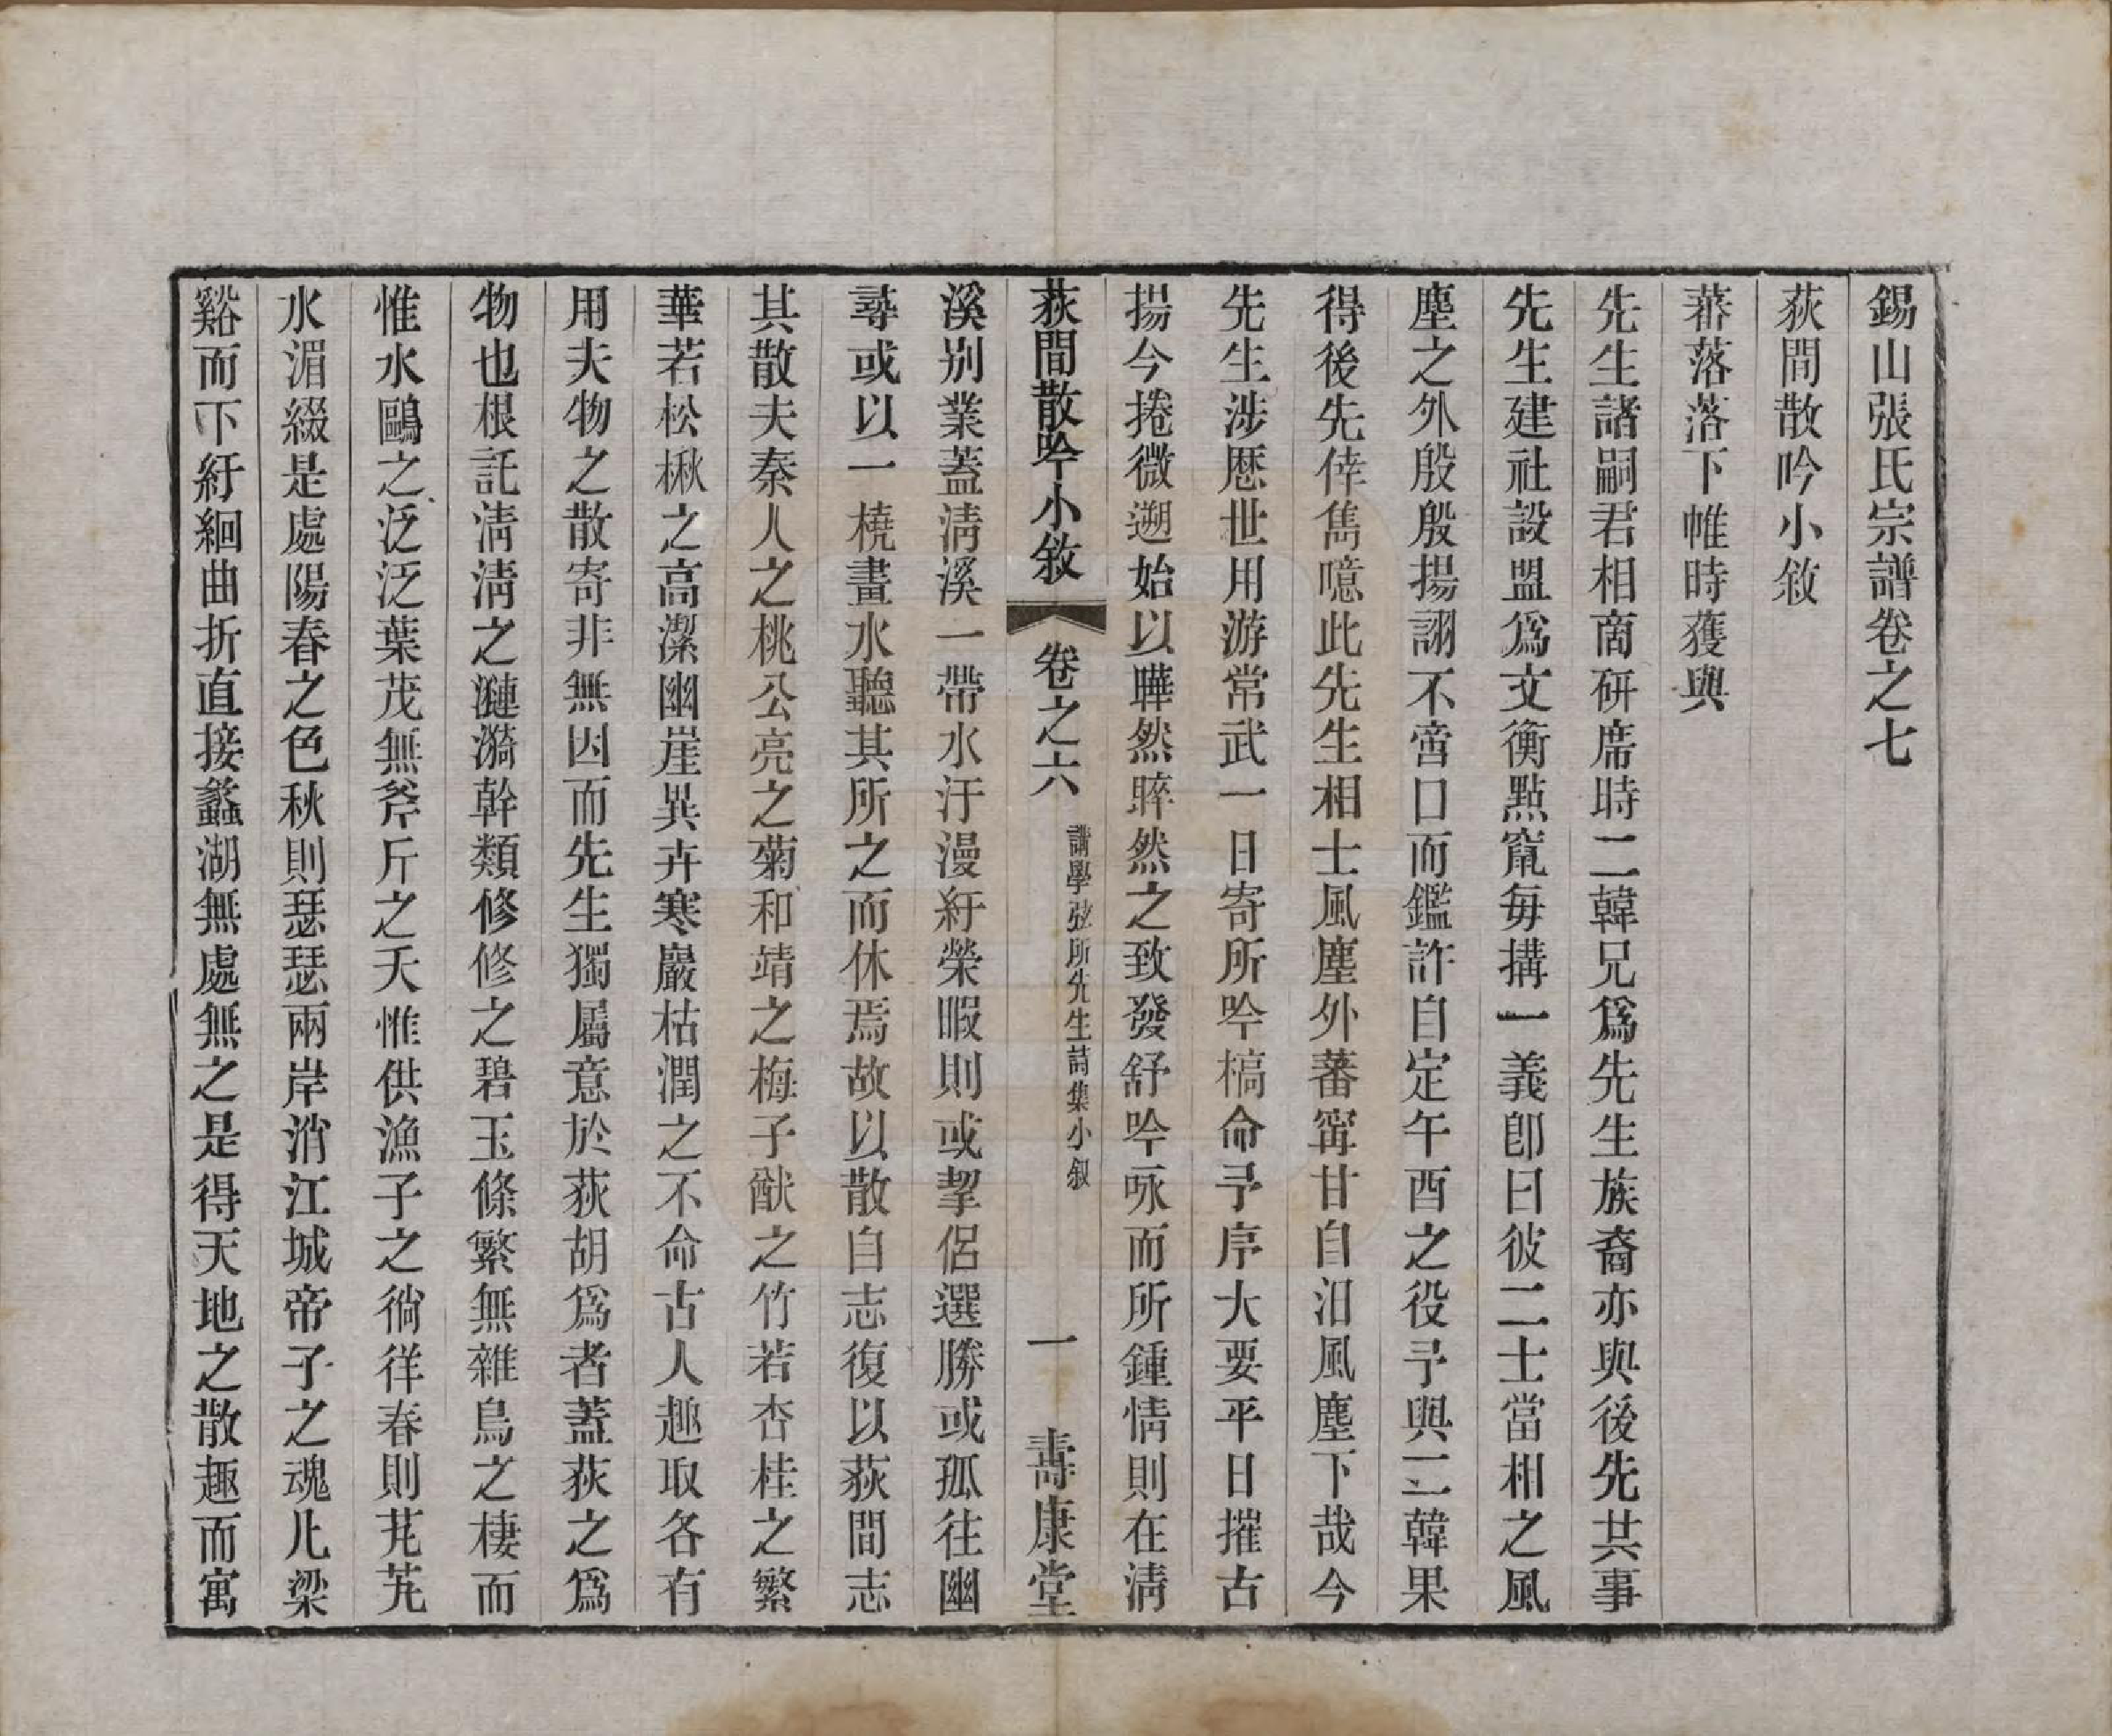 錫山張氏宗譜卷之七
荻間散吟小敘
蕃落落下帷時獲與
先生諸嗣君相商研席時二韓兄爲先生族裔亦與後先共事
先生建社設盟爲文衡點竄每搆一義卽曰彼二士當相之風
塵之外殷殷揚詡不啻口而鑑許自定午酉之役予與二韓果
得後先倖雋噫此先生相士風塵外蕃甯甘自汨風塵下哉今
先生涉厯世用游常武一日寄所吟槁命予序大要平日摧古
揚今捲微遡始以曄然睟然之致發舒吟咏而所鍾情則在淸
荻間散吟小敘 卷之六 譜學弦所先生詩集小叙 一 壽康堂
溪别業蓋淸溪一帶水汙漫紆縈暇則或挈侣選勝或孤往幽
尋或以一橈畫水聽其所之而休焉故以散自志復以荻間志
其散夫秦人之桃公亮之菊和靖之梅子猷之竹若杏桂之繁
華若松楸之高潔幽崖異卉寒巖枯澗之不命古人趣取各有
用夫物之散寄非無因而先生獨屬意於荻胡爲者蓋荻之爲
物也根託淸淸之漣漪幹類修修之碧玉條繁無雜鳥之棲而
惟水鷗之泛泛葉茂無斧斤之夭惟供漁子之徜徉春則芃芃
水湄綴是處陽春之色秋則瑟瑟兩岸消江城帝子之魂凡梁
谿而下紆緗曲折直接蠡湖無處無之是得天地之散趣而寓